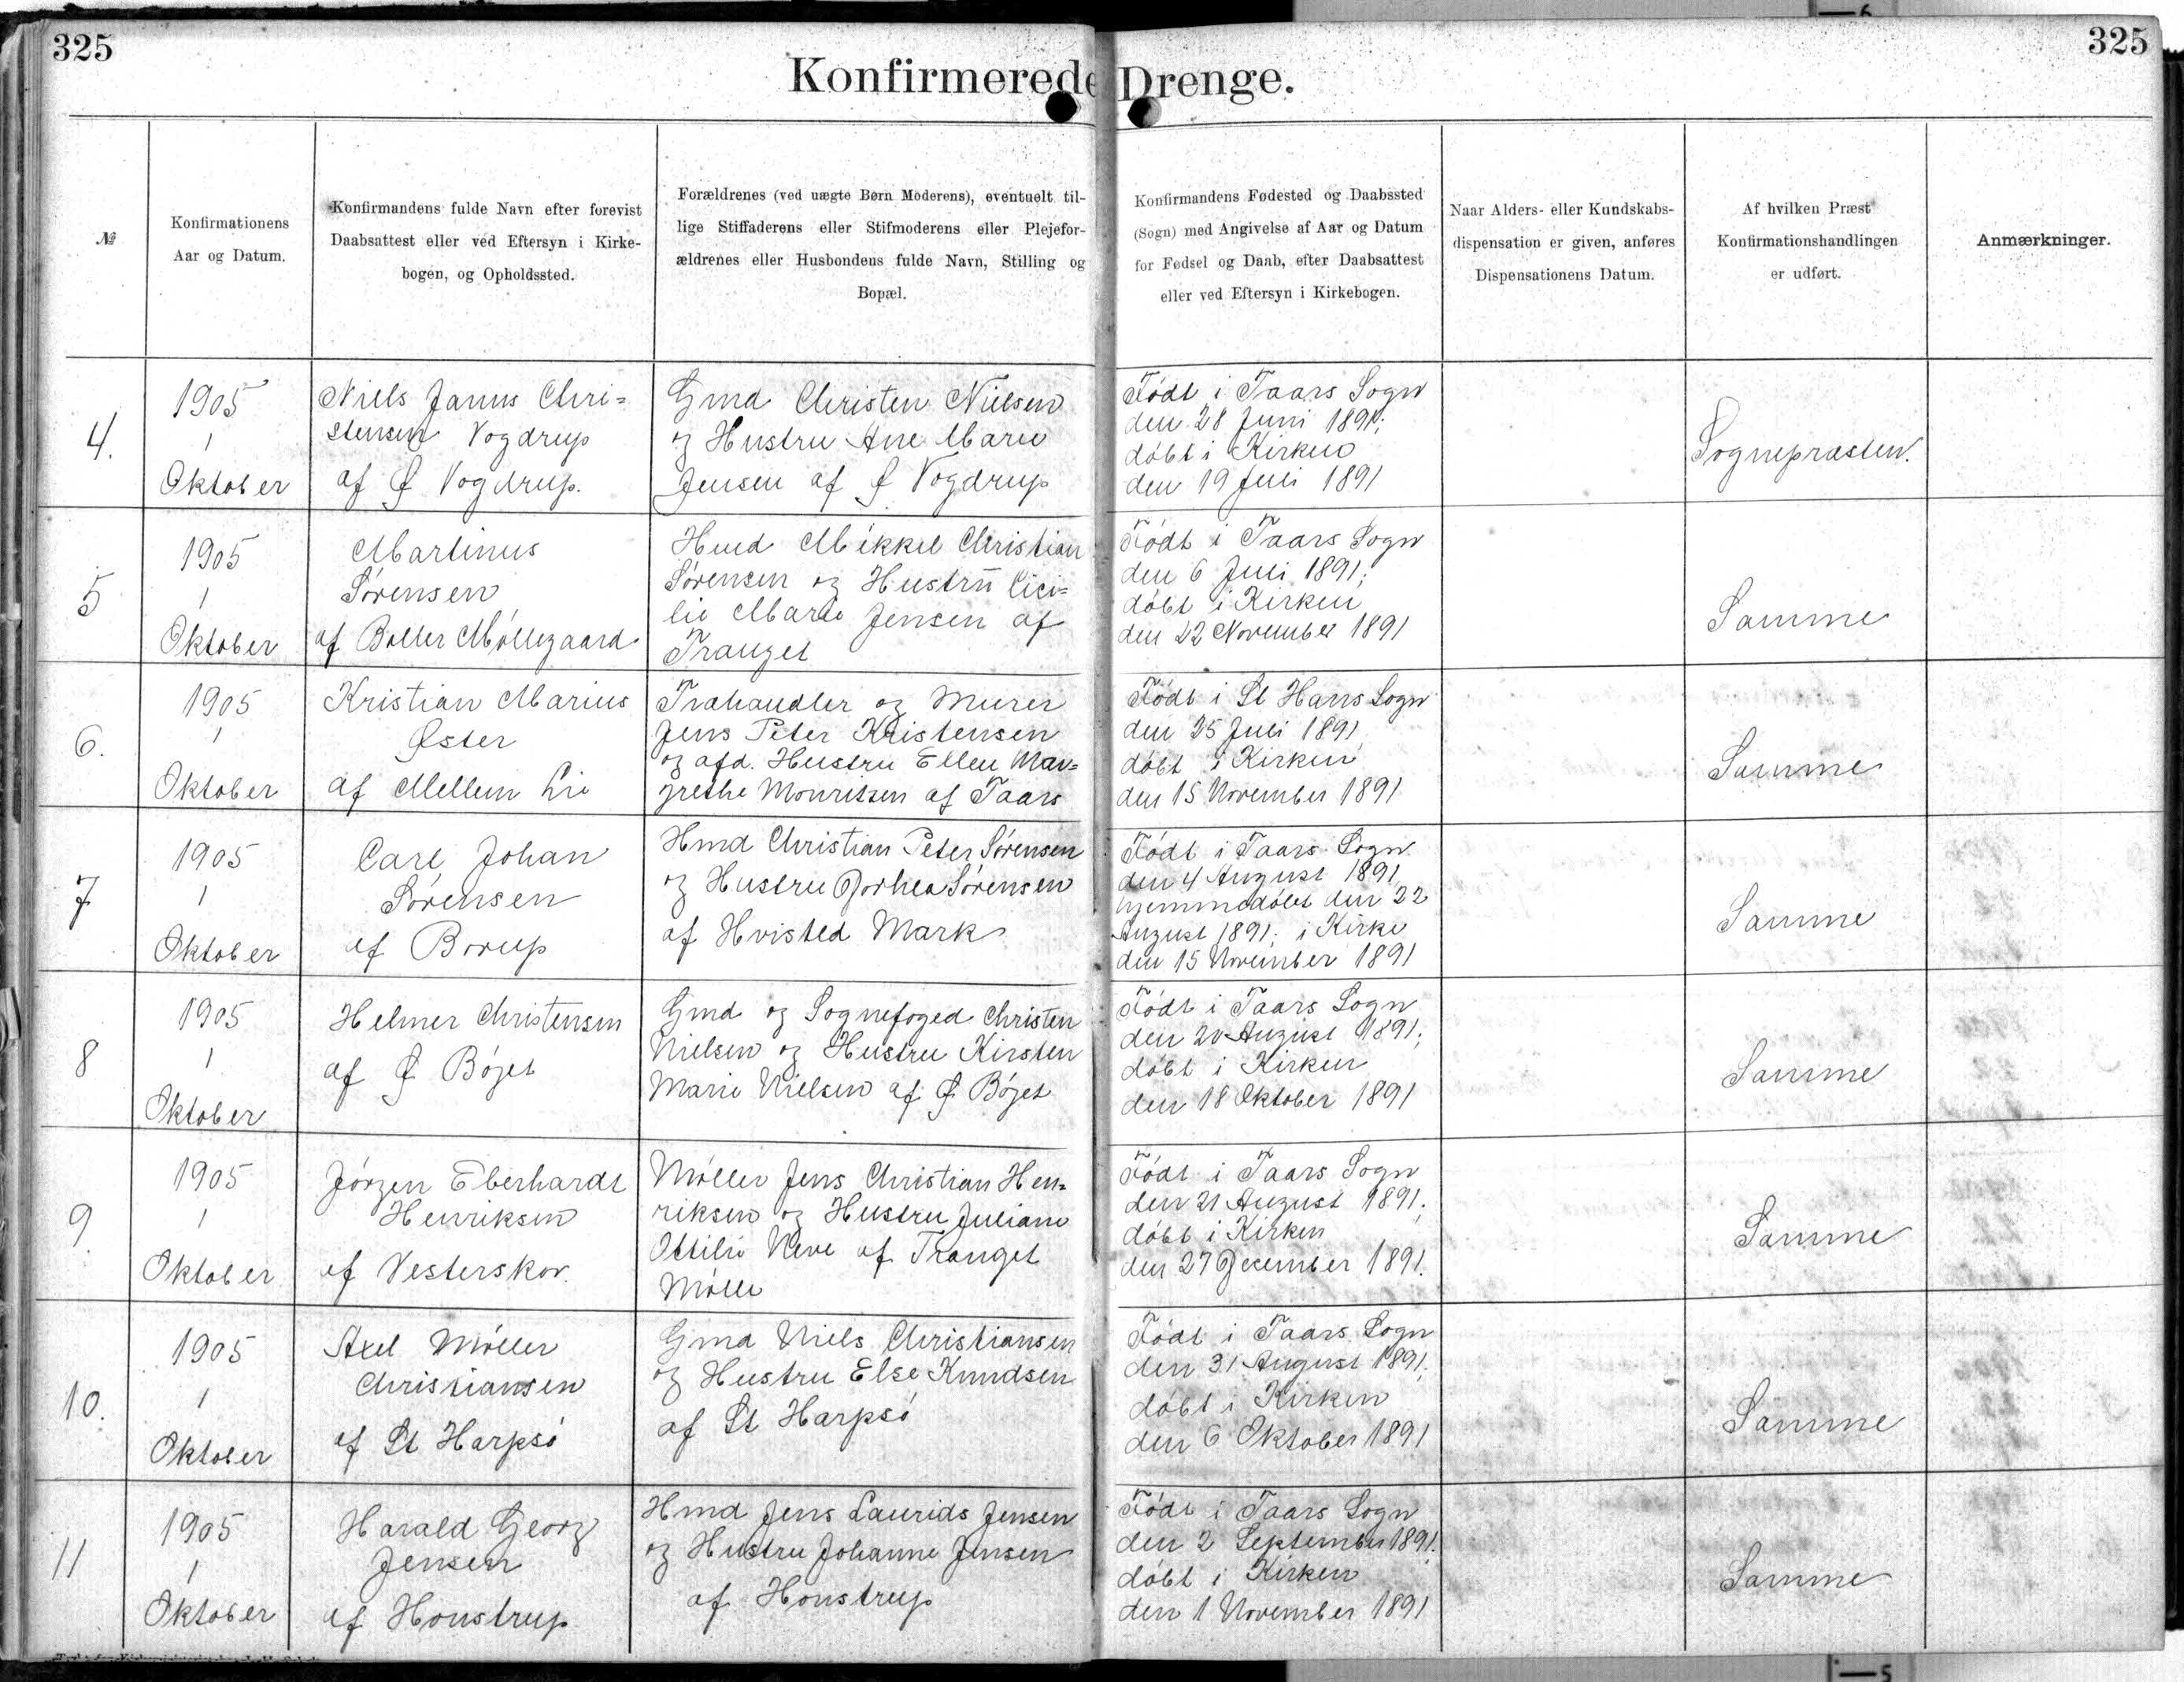 325
325
Konfirmerede Drenge.
№
Konfirmationens
Aar og Datum.
Konfirmandens fulde Navn efter forevist
Daabsattest eller ved Eftersyn i Kirke-
bogen, og Opholdssted.
Forældrenes (ved uægte Børn Moderens), eventuelt til-
lige Stiffaderens eller Stifmoderens eller Plejefor-
ældrenes eller Husbondens fulde Navn, Stilling og
Bopæl.
Konfirmandens Fødested og Daabssted
(Sogn) med Angivelse af Aar og Datum
for Fødsel og Daab, efter Daabsattest
eller ved Eftersyn i Kirkebogen.
Naar Alders- eller Kundskabs-
dispensation er given, anføres
Dispensationens Datum.
Af hvilken Præst
Konfirmationshandlingen
er udført.
Anmærkninger.
4.
1905
1
Oktober
Niels Janus Chri=
stensen Vogdrup
af Ø Vogdrup.
Gmd Christen Nielsen
og Hustru Ane Marie
Jensen af Ø Vogdrup
Født i Taars Sogn
den 28 Juni 1891;
døbt i Kirken
den 19 Juli 1891
Sognepræsten.
5
1905
1
Oktober
Martinus
Sørensen
af Boller Møllegaard
Hmd Mikkel Christian
Sørensen og Hustru Cici=
lie Marie Jensen af
Tranget
Født i Taars Sogn
den 6 Juli 1891;
døbt i Kirken
den 22 November 1891
Samme
6.
1905
1
Oktober
Kristian Marius
Øster
af Mellem Lie
Træhandler og Murer
Jens Peter Kristensen
og afd. Hustru Ellen Mar=
grethe Mouritsen af Taars
Født i St Hans Sogn
den 25 Juli 1891
døbt i Kirken
den 15 November 1891
Samme
7
1905
1
Oktober
Carl Johan
Sørensen
af Borup
Hmd Christian Peter Sørensen
og Hustru Dorhea Sørensen
af Hvisted Mark
Født i Taars Sogn
den 4 August 1891
hjemmedøbt den 22
August 1891; i Kirke
den 15 November 1891
Samme
8
1905
1
Oktober
Helmer Christensen
af Ø Bøget
Gmd og Sognefoged Christen
Nielsen og Hustru Kirsten
Marie Nielsen af Ø Bøget
Født i Taars Sogn
den 20 August 1891;
døbt i Kirken
den 18 Oktober 1891
Samme
9.
1905
1
Oktober
Jørgen Eberhardt
Henriksen
af Vesterskov.
Møller Jens Christian Hen=
riksen og Hustru Juliane
Ottilie Neve af Tranget
Mølle
Født i Taars Sogn
den 21 August 1891;
døbt i Kirken
den 27 December 1891.
Samme
10.
1905
1
Oktober
Axel Møller
Christiansen
af St Harpsø
Gmd Niels Christiansen
og Hustru Else Knudsen
af St Harpsø
Født i Taars Sogn
den 31 August 1891;
døbt i Kirken
den 6 Oktober 1891
Samme
11
1905
1
Oktober
Harald Georg
Jensen
af Honstrup
Hmd Jens Laurids Jensen
og Hustru Johanne Jensen
af Honstrup
Født i Taars Sogn
den 2 September 1891.
døbt i Kirken
den 1 November 1891
Samme